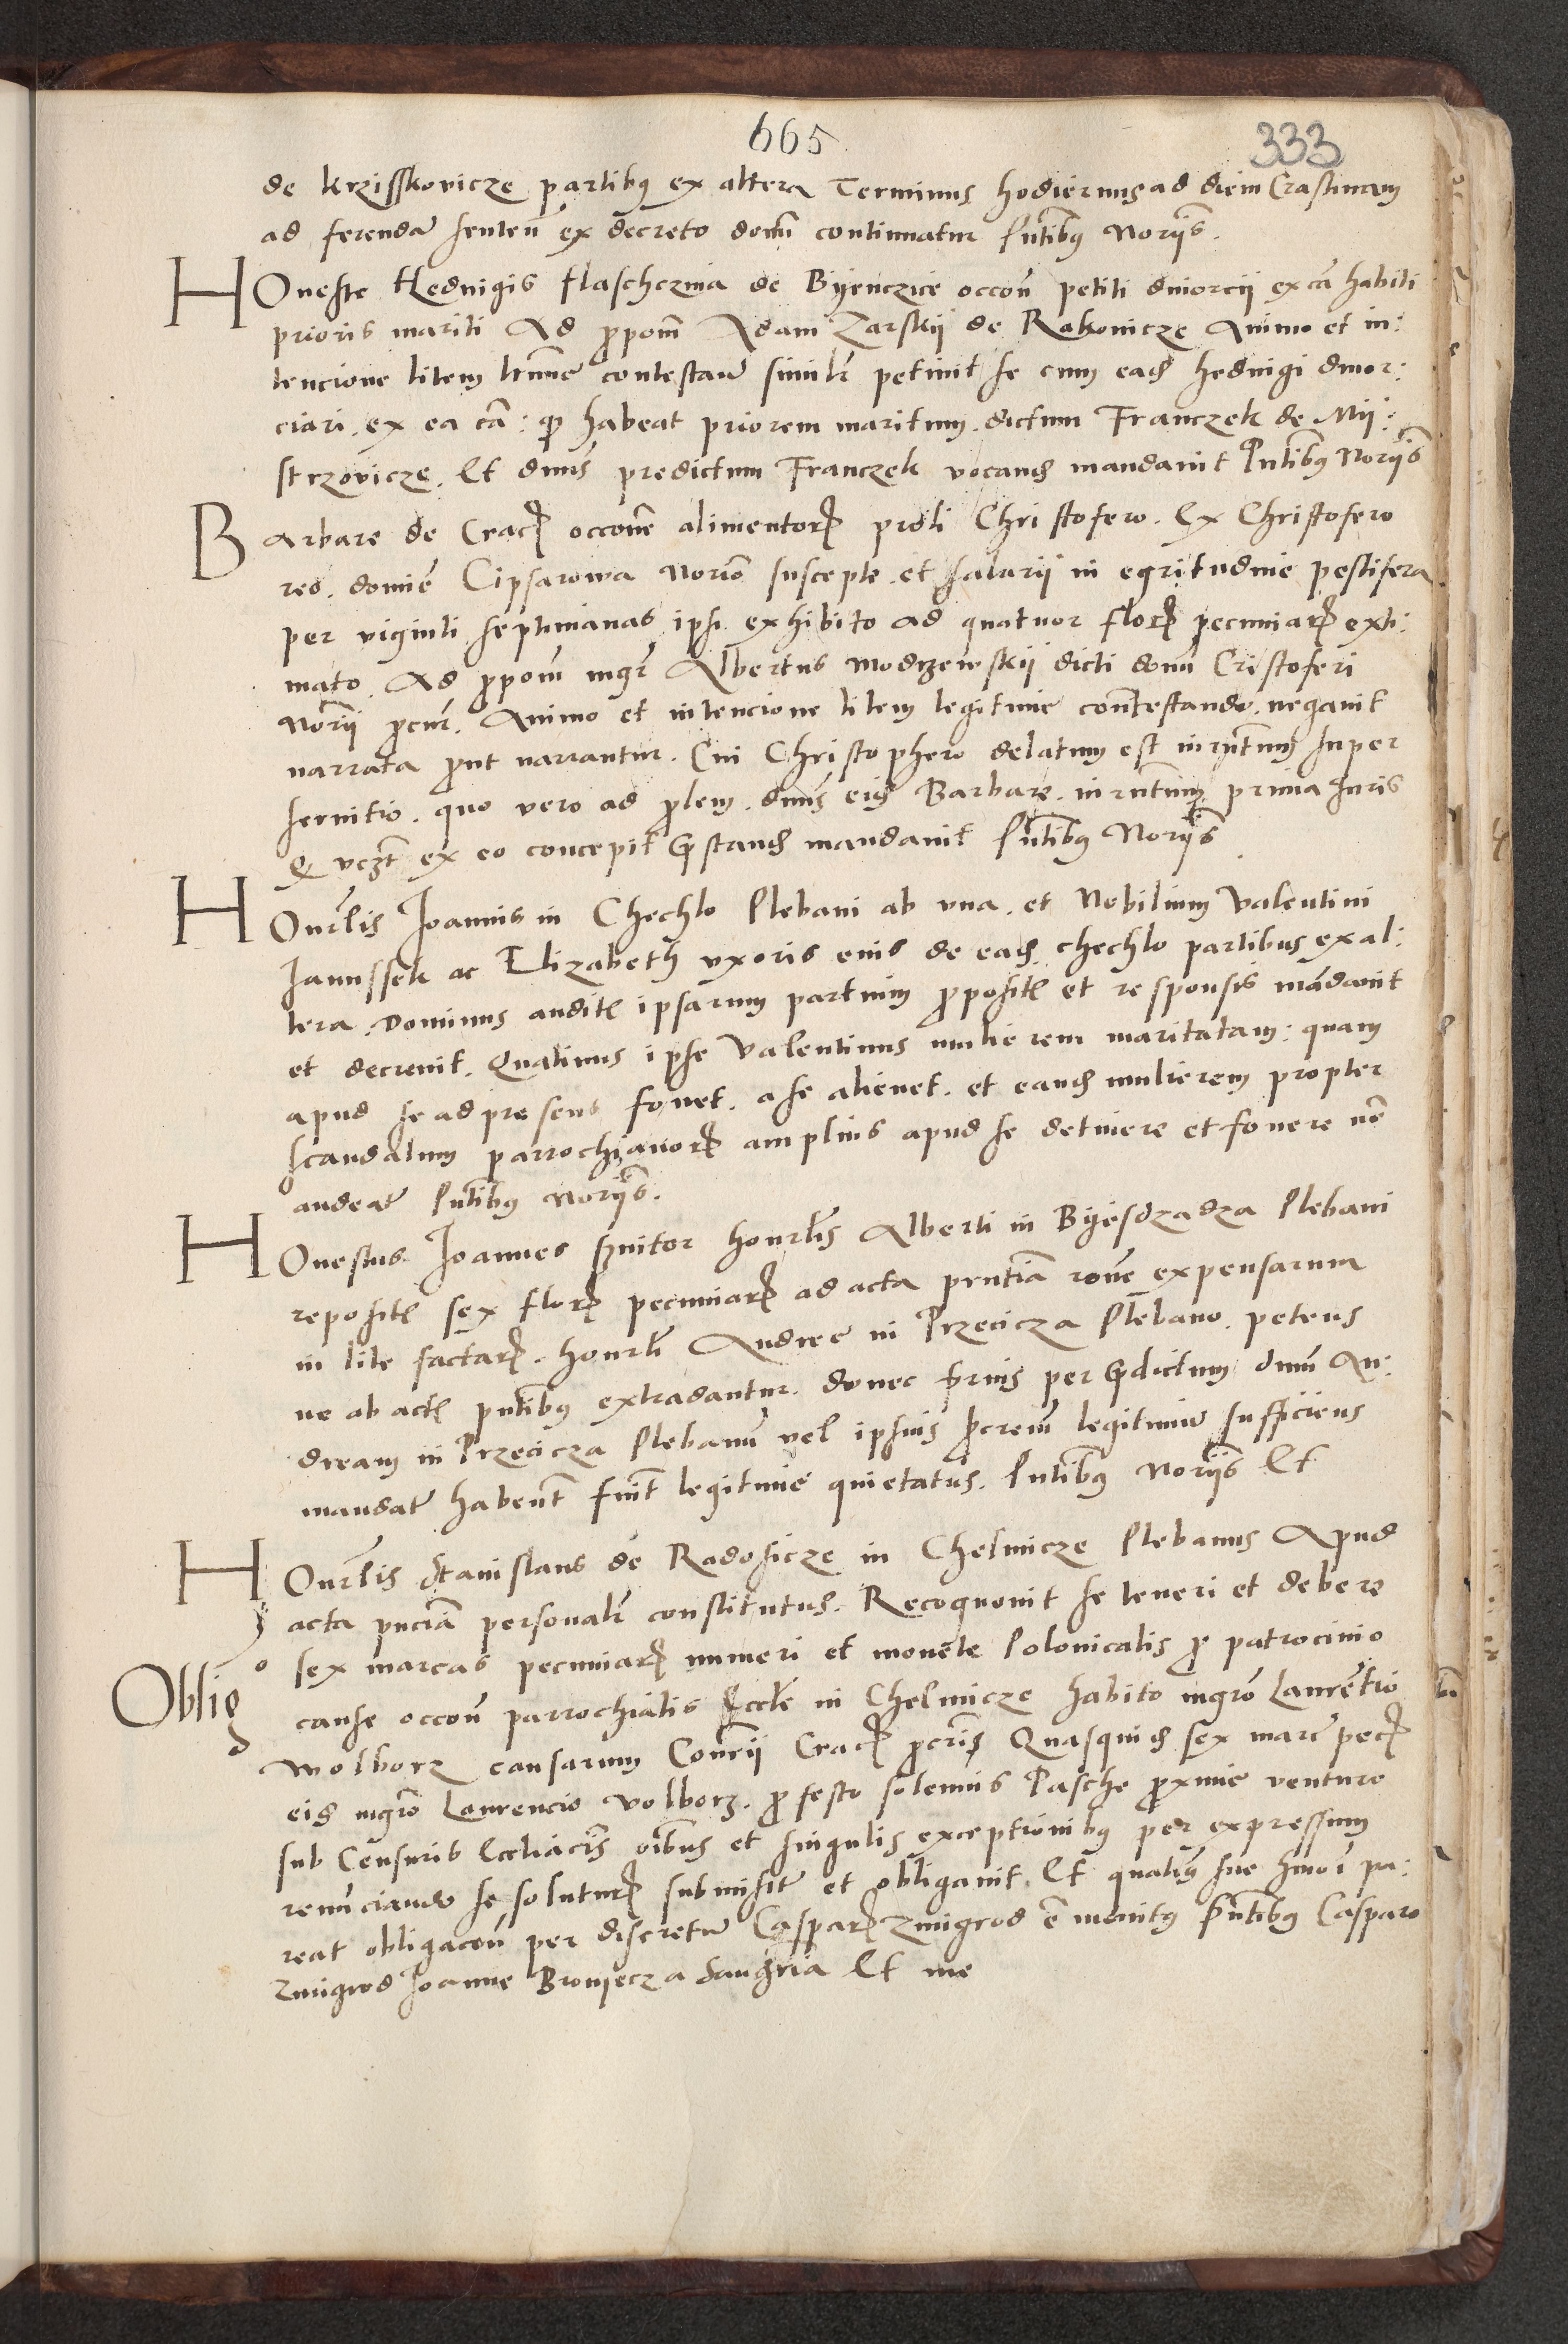 665
333
de Krzisskovicze partibus ex altera Terminus hodiernus ad diem Crastinam
ad ferendam senten͂ ex decreto domi͂ continuatur Pn͂tibus Norijs.
HOneste Hedvigis flaschczina de Byenczice occon͂ petiti divorcii ex ca͂ habiti
prioris mariti Ad ꝓpom͂ Adam Zarskij de Rakovicze Animo et in:
tencione litem ltime͂ contestan͂ simil͂r petivit se cum eadꝫ hedvigi divor:
ciari. ex ea ca͂: ꝙ habeat priorem maritum dictum Franczek de Mij:
strzovicze. Et dnus͂ predictum Franczek vocandꝫ mandavit Pn͂tibus Norijs
BArbare de Cracꝭ occone͂ alimentorꝭ proli Christofero. Ex Christofero
reo. domie͂ Cipsarowa Norio͂ suscepte. et salarii in egritudine pestifera
per viginti septimanas ipsi exhibito ad quatuor florꝭ pecuniarꝭ exti:
mato. Ad ꝓpom͂ mgr͂ Albertus modrzewskij dicti domi͂ Cristoferi
Norij͂ ꝓcur͂. Animo et intencione litem legitime contestando. negavit
narrata ꝓut narrantur. Cui Christophero delatum est iur͂ntumꝫ super
servitio. quo vero ad ꝓlem. dnus͂ eidꝫ Barbare. iur͂ntum. prima Iuris
ꝙ vcz͂t ex eo concepit ꝓstandꝫ mandavit Pn͂tibus Norijs
HOnr͂lis Joannis in Chechlo Plebani ab una. et Nobilium Valentini
Janussek ac Elizabeth uxoris eius de eadꝫ. chechlo partibus ex al:
tera. Dominus auditꝭ ipsarum partium ꝓpositꝭ et responsis mandavit
et decrevit. Quatinus ipse Valentinus mulierem maritatam: quam
apud se ad presens fovet. a se alienet. et eandꝫ mulierem propter
scandalum parrochianorꝭ amplius apud se detinere et fovere no͂
audeat͂ Pn͂tibus Norijs.
HOnestus Joannes svitor honrl͂is Alberti in Byesdzadza Plebani
repositꝭ sex florꝭ pecuniarꝭ ad acta pn͂tia͂ rone͂ expensarum
in lite factarꝭ. honrl͂i Andree in Przecicza Plebano. petens
ne ab actꝭ pn͂tibus extradantur. donec prius per ꝓdictum dnum͂ An:
dream in Przecicza Plebanu͂ vel ipsius ꝓcrem͂ legitimu͂ sufficiens
mandat͂ haben͂t fuit͂ legitime quietatus. Pn͂tibus Norijs Et
HOnrl͂is Stanislaus de Radosicze in Chelmicze Plebanus Apud
acta pn͂cia͂ personal͂r constitutus. Recognovit se teneri et debere
sex marcas pecuniarꝭ numeri et monete͂ Polonicalis ꝓ patrocinio
Oblig͂o
cause occon͂ parrochialis Eccl͂e in Chelmicze habito mgro͂ Laure͂tio
Wolborz causarum Con͂rij Cracꝭ ꝓcris͂ Quasquidꝫ sex marc͂ pecꝭ
eidꝫ mgro͂ Laurencio Volborz. ꝓ festo solemnis Pasche ꝓxime venturo
sub Censuris Eccl͂iacis͂ oi͂bus et singulis exceptionibus per expressum
renu͂ciando se soluturꝭ submisit͂ et obligavit. Et quatin͂ sue hmo͂i pa:
reat obligaco͂ni per discretu͂ Casparꝭ Zmigrod e͂ monitus Pn͂tibus Casparo
Zmigrod Joanne Bronyecz a Sandria Et me